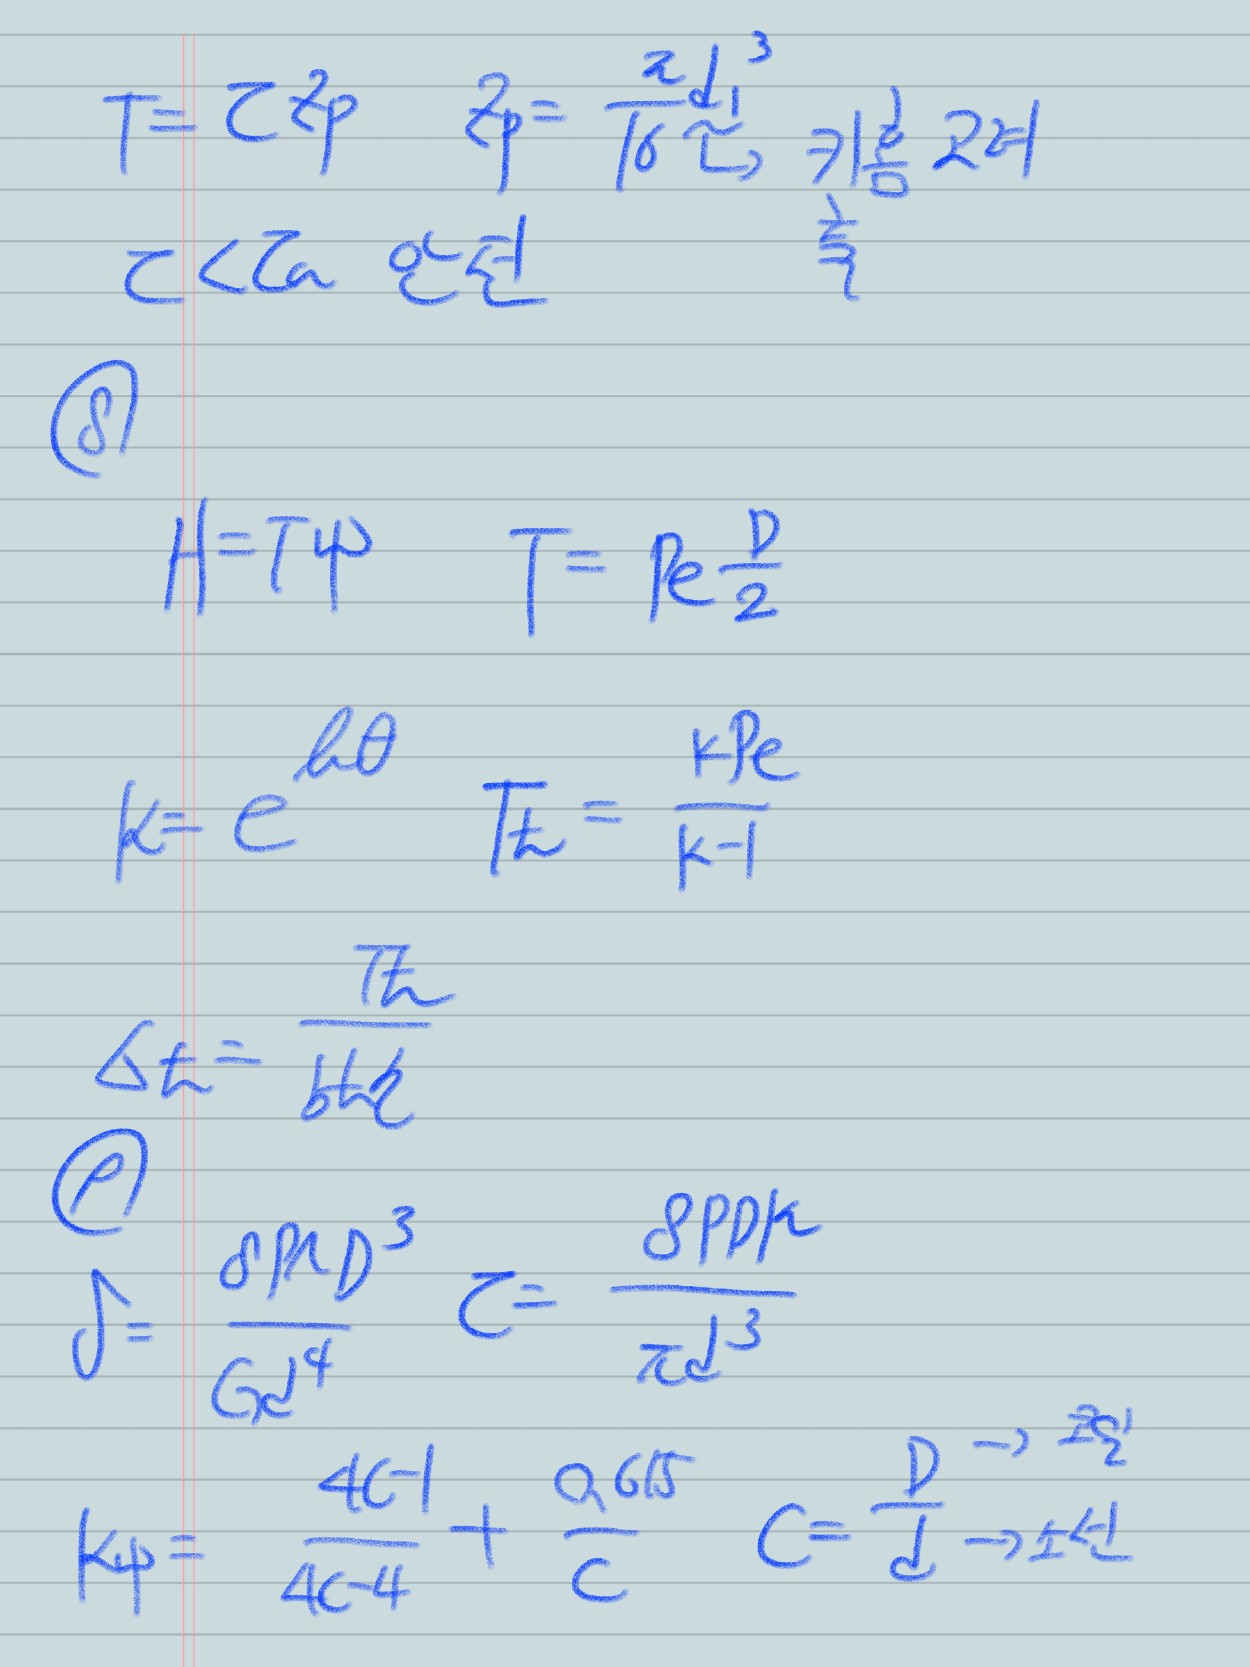 T = τ Zp Zp = πd₁³/16 → 키홈 고려
τ < τa 안전 축
⑧
H = Tω T = Pe D/2
k = e^μθ Tt = kPe/k-1
σt = Tt/btη
⑨
δ = 8PnD³/Gd⁴ τ = 8PDK/πd³
K = 4C-1/4C-4 + 0.615/C C = D/d → 코일 → 소선